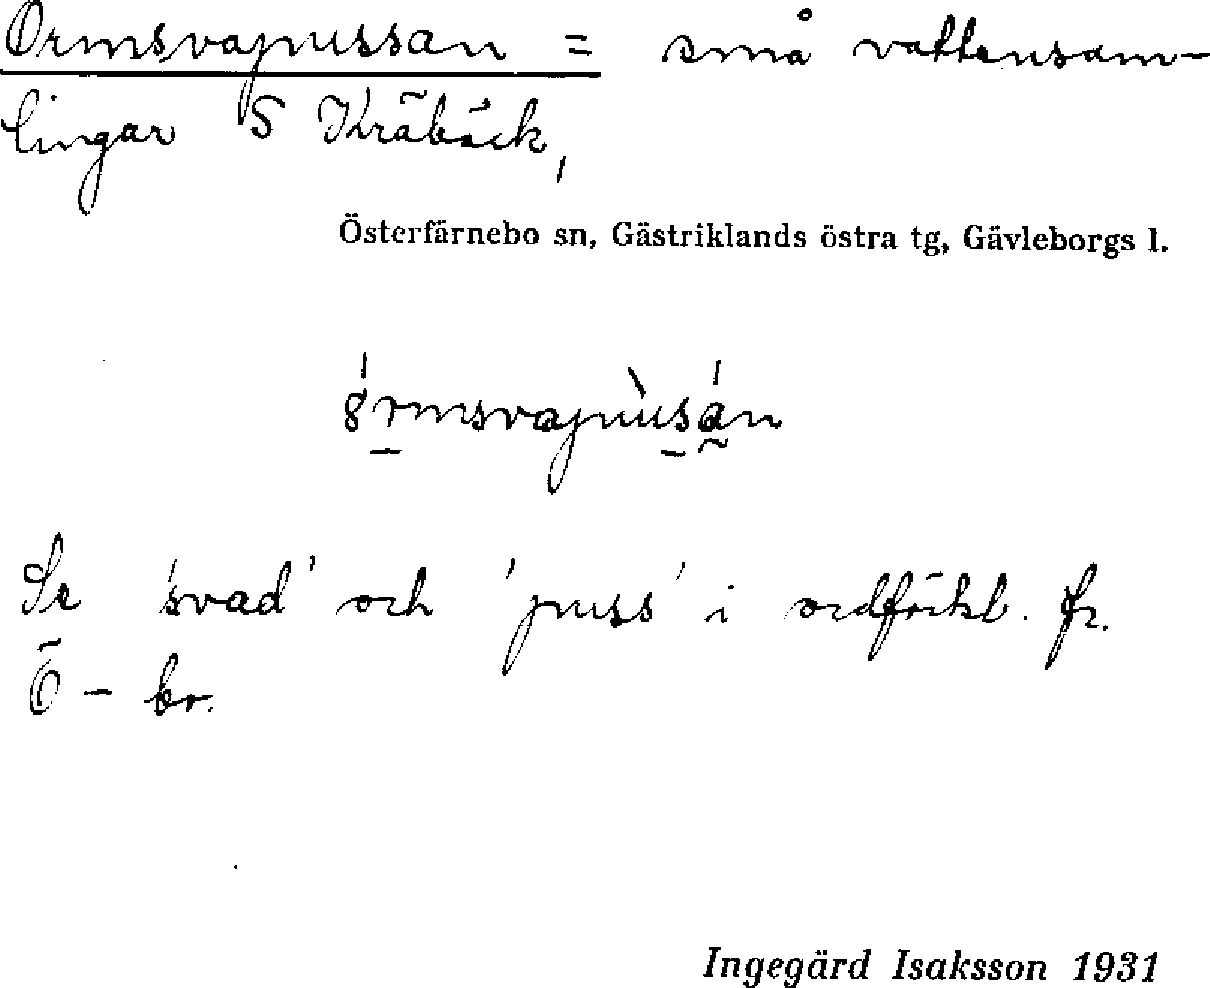 Ormsvapussan = små vattensam-
lingar S Kräbäck,
Österfärnebo sn, Gästriklands östra tg, Gävleborgs l.
Se 'svad' och 'puss' i ordförkl. fr.
Ö-bo.
Ingegärd Isaksson 1931